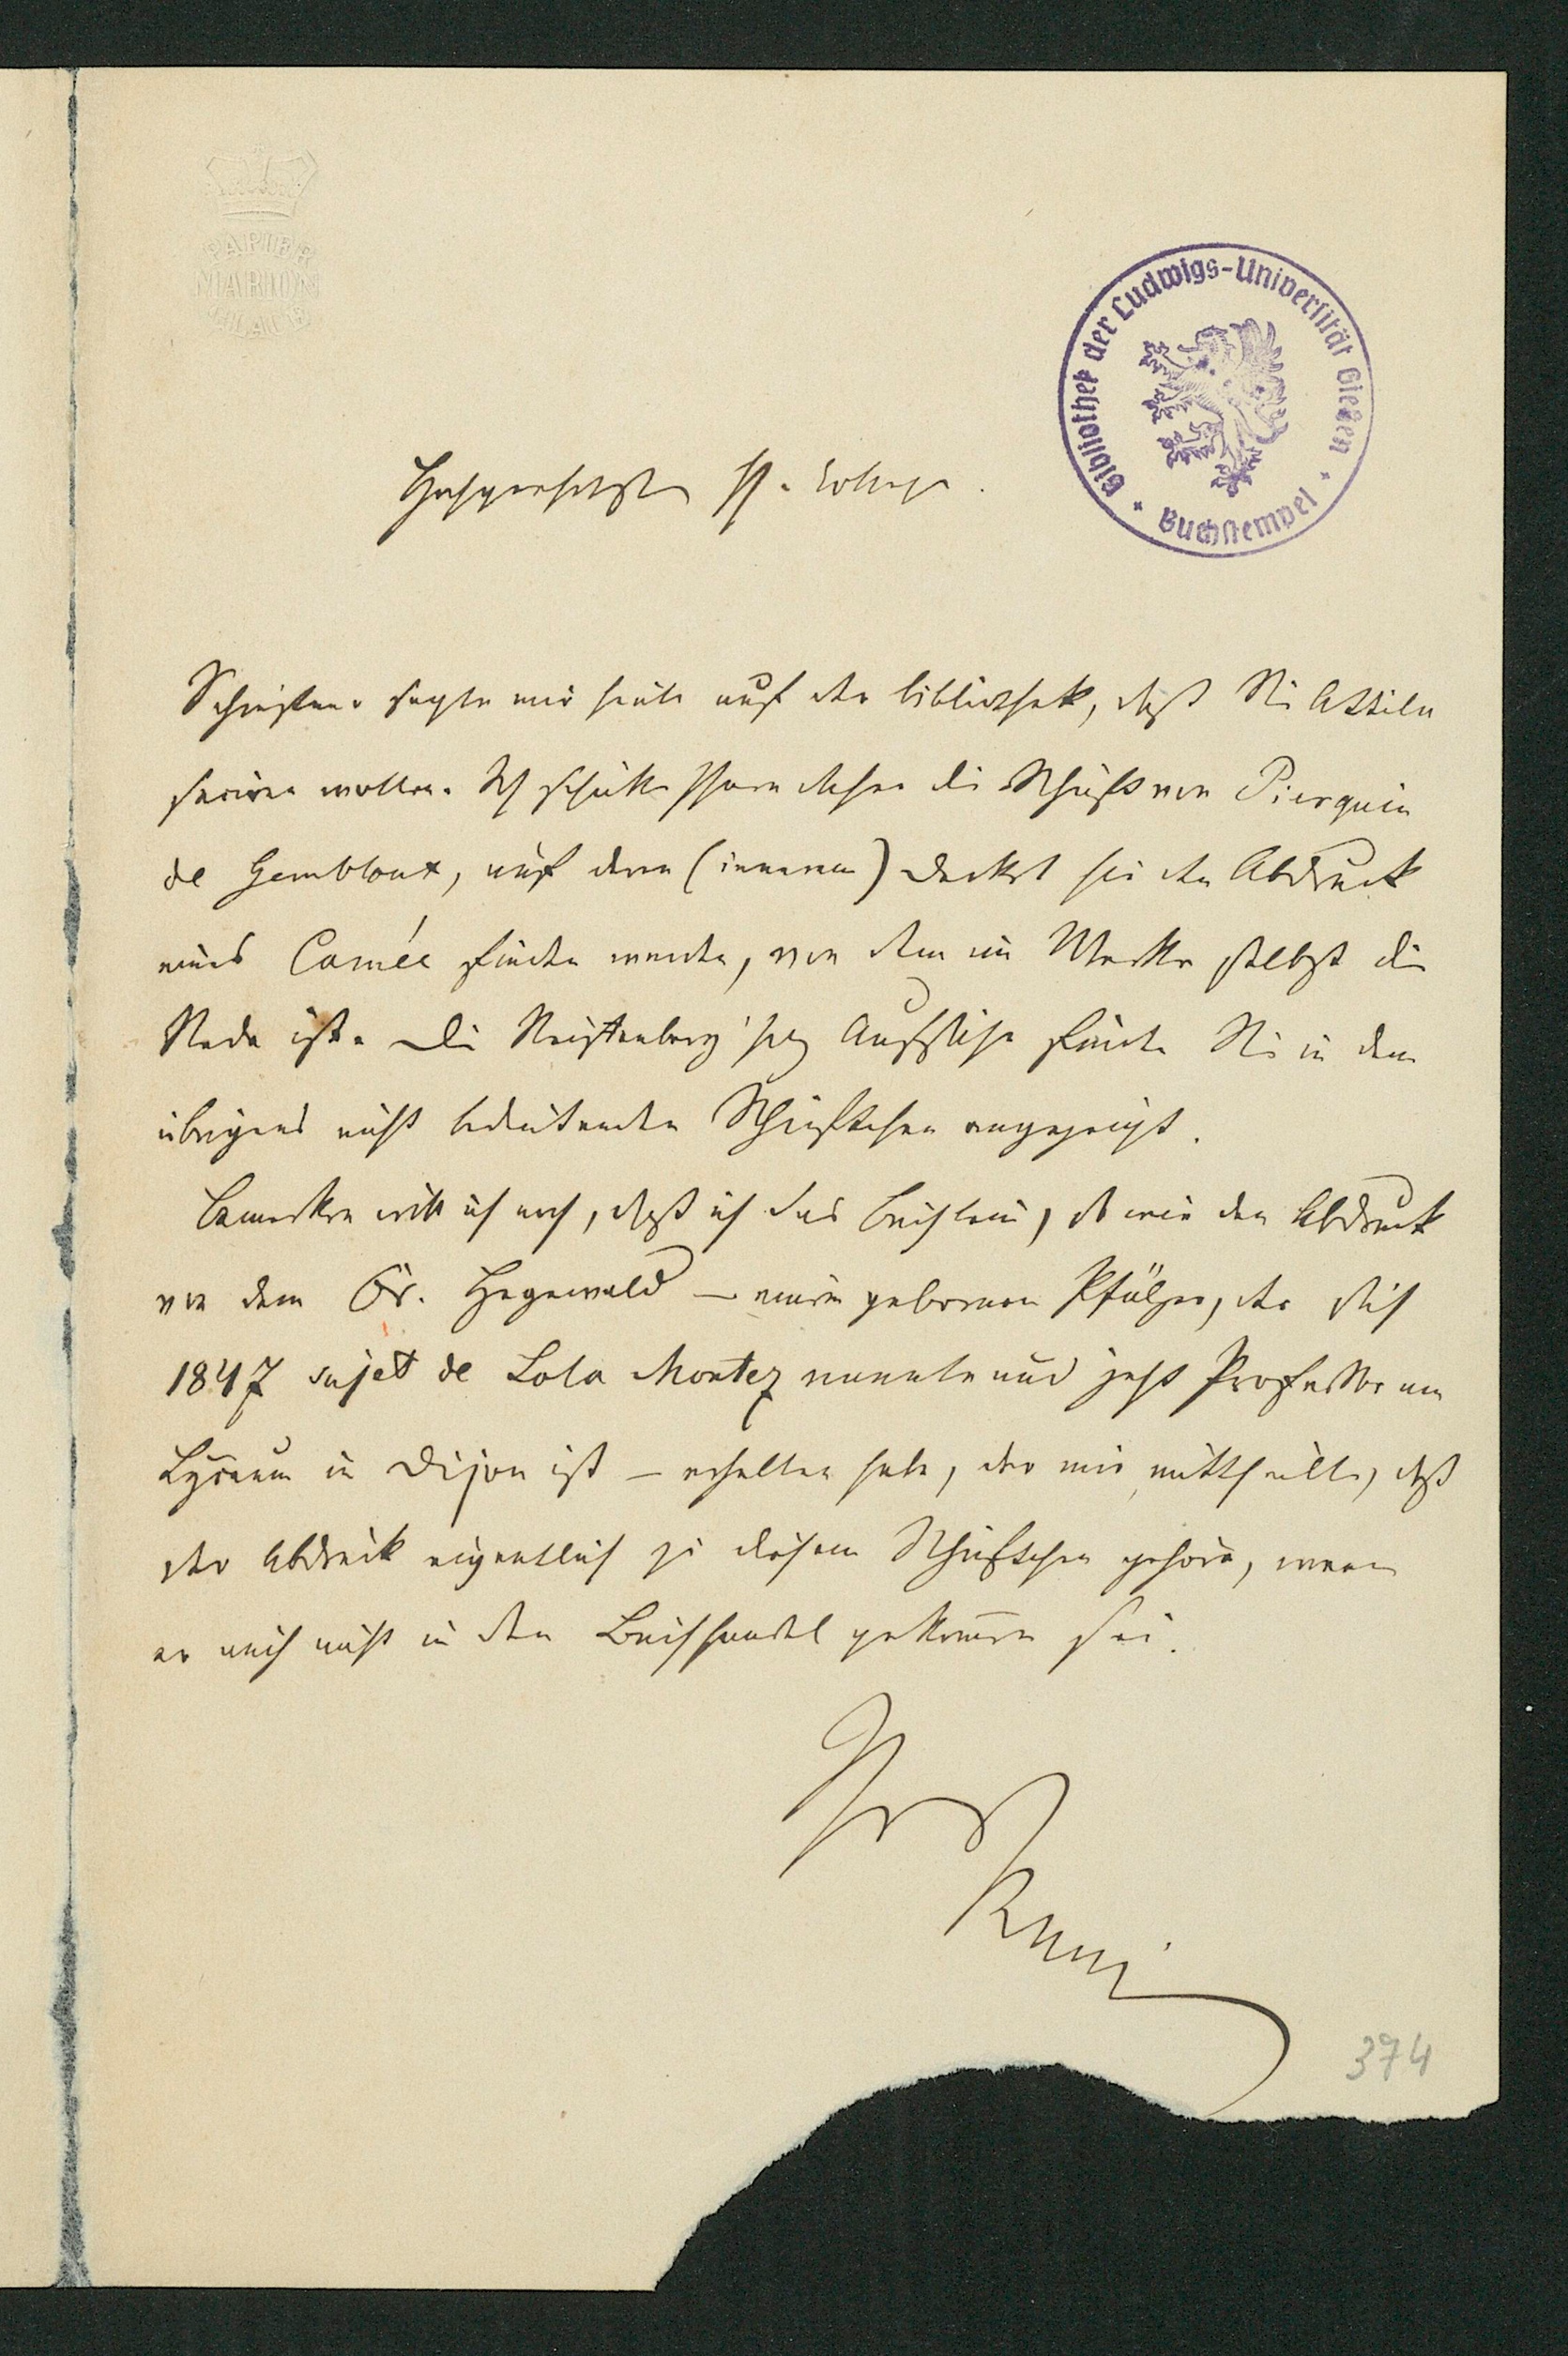 PAPIER
MARION
Bibliothek der Ludwigs-Universität Gießen
Buchstempel
Hochgeschätzter H. College.
sagte mir heute auf der Bibliothek, daß Sie Attila
wollen. Ich schicke Ihnen daher die Schrift von Pierquin
de Gembloux, auf deren (inneren) Deckel Sie den Abdruck
eines Camée finden werden, von dem im Werke selbst die
Rede ist. Die finden Sie in dem
übrigens nicht bedeutenden Schriftchen angezeigt.
Bemerken will ich noch, daß ich das Büchlein, so wie den Abdruck
von dem Dr. Hegewald — einem gebornen Pfälzer, der sich
1847 sujet de Lola Montez nannte und jetzt Professor am
Lyceum in Dijon ist — erhalten habe, der mir mittheilte, daß
der Abdruck eigentlich zu diesem Schriftchen gehöre, wenn
er auch nicht in den Buchhandel gekommen sei.
Ihr
374